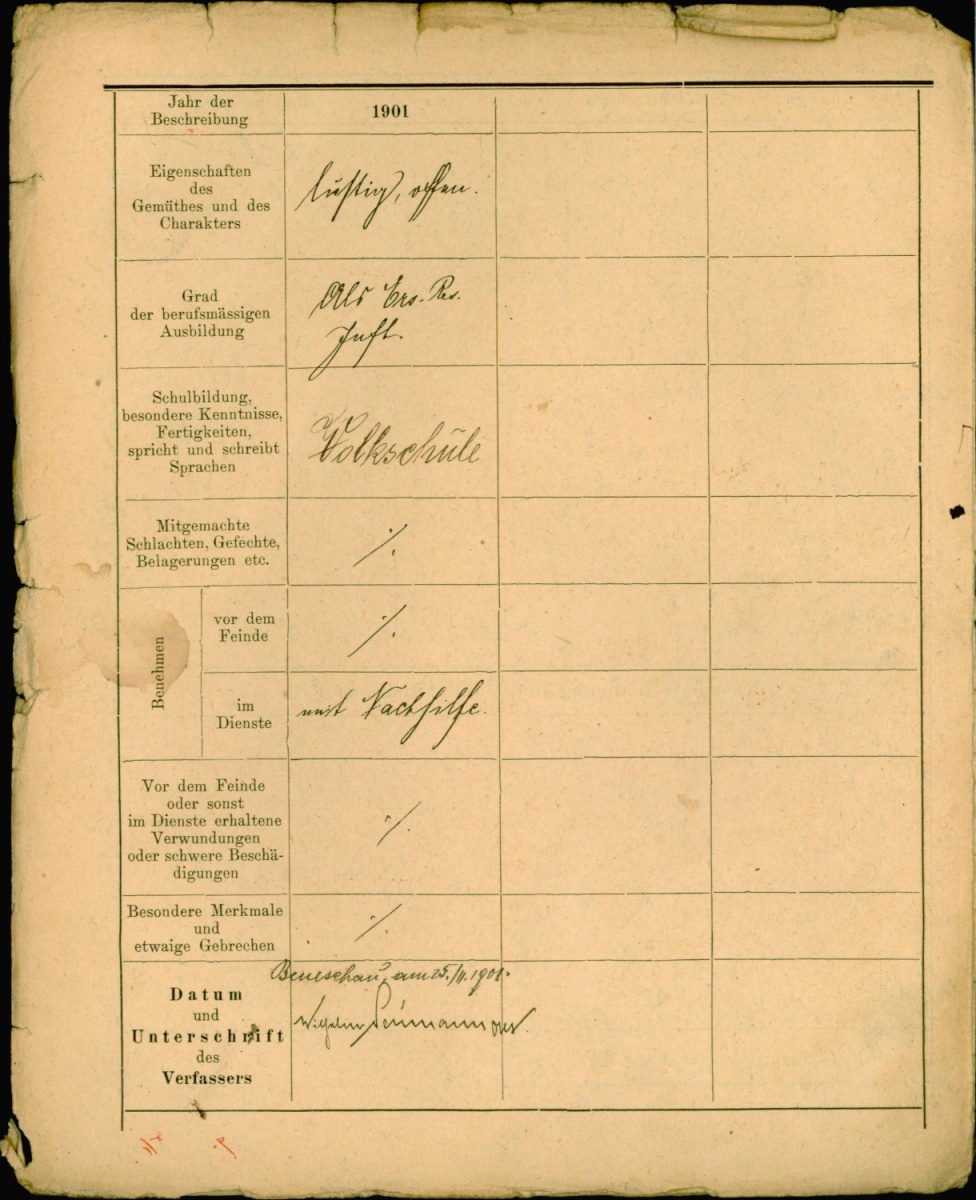 Jahr der
Beschreibung
1901
Eigenschaften
des
Gemüthes und des
Charakters
lustig, offen.
Grad
der berufsmässigen
Ausbildung
Als Ers. Res.
Inft.
Schulbildung,
besondere Kenntnisse,
Fertigkeiten,
spricht und schreibt
Sprachen
Volkschule
Mitgemachte
Schlachten, Gefechte,
Belagerungen etc.
·/.
Benehmen
vor dem
Feinde
·/.
im
Dienste
mit Nachhilfe.
Vor dem Feinde
oder sonst
im Dienste erhaltene
Verwundungen
oder schwere Beschä-
digungen
·/.
Besondere Merkmale
und
etwaige Gebrechen
·/.
Datum
und
Unterschrift
des
Verfassers
Beneschau, am 25./11. 1901.
Wilhelm